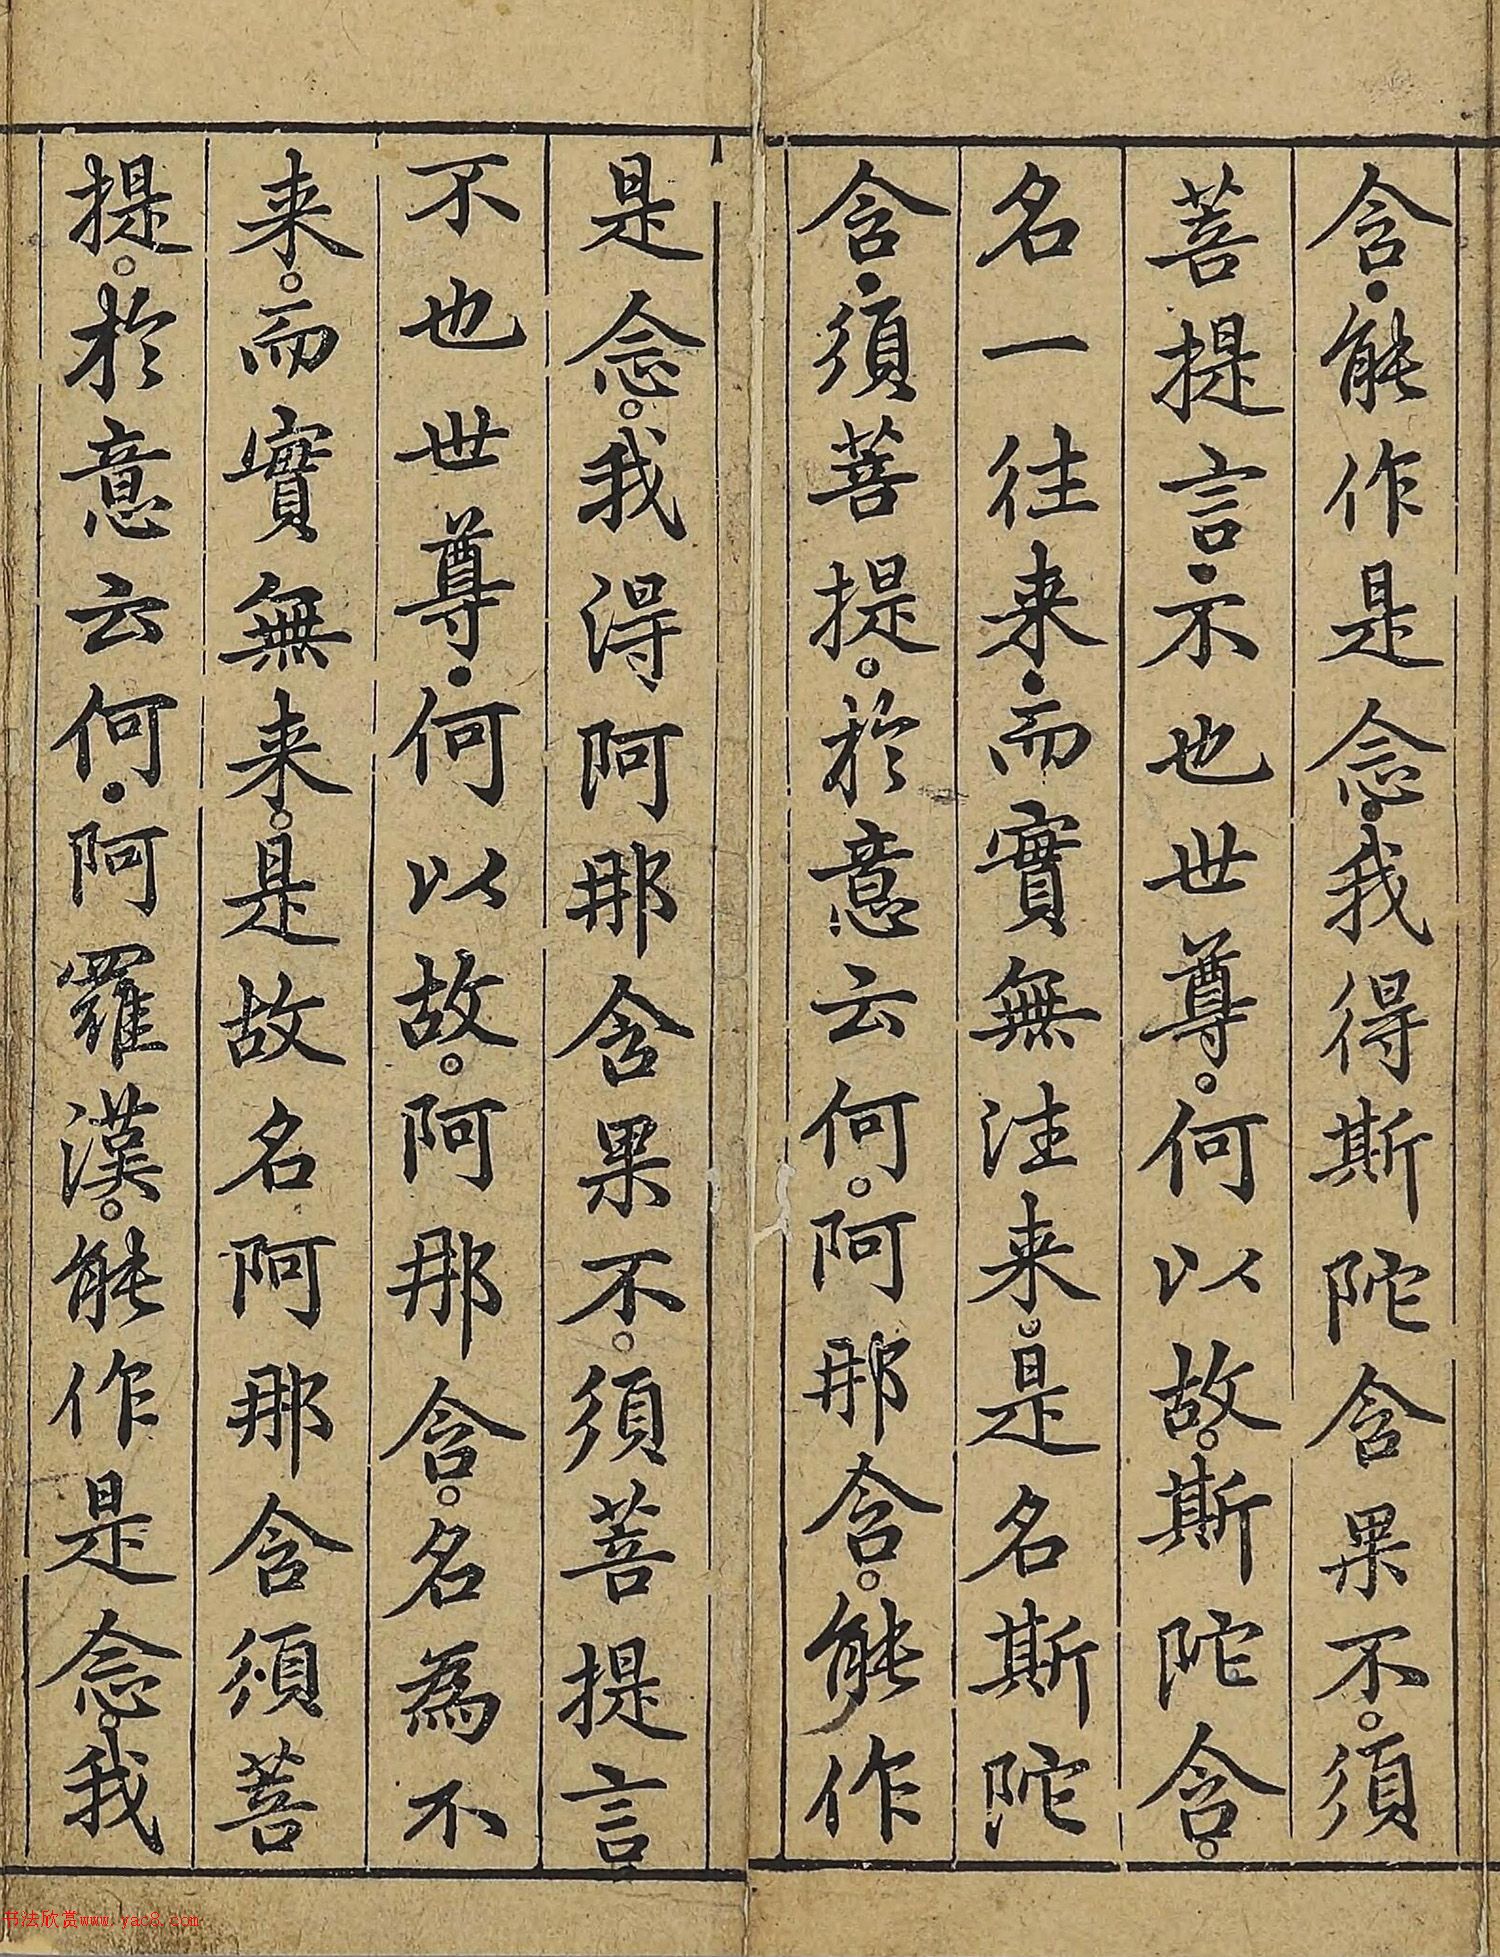 含能作是念我得斯陀含果不須
菩提言不也世尊何以故斯陀含
名一往来而實無往来是名斯陀
含須菩提於意云何阿那含能作
是念我得阿那含果不須菩提言
不也世尊何以故阿那含名為不
来而實無来是故名阿那含須菩
提於意云何阿羅漢能作是念我
书法欣赏www.yac8.com